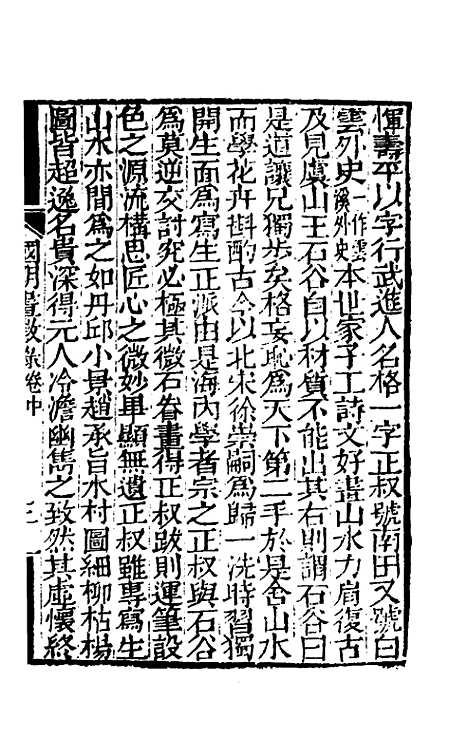 惲壽平以字行武進人名格一字正叔號南田又號白
雲外史一作雲溪外史本世家子工詩文好畫山水力崩復古
及見虞山王石谷自以材質不能出其右則謂石谷曰
是道讓兄獨步矣格妄恥為天下第二手於是舍山水
而學花卉斟酌古今以北宋徐崇嗣為歸一洗時習獨
開生面為寫生正派由是海內學者宗之正叔與石谷
為莫逆交討究必極其微石谷畫得正叔跋則運筆設
色之源流構思匠心之微妙畢顯無遺正叔雖專寫生
山水亦間為之如丹邱小景趙承旨水村圖細柳枯楊
圖皆超逸名貴深得元人冷澹幽雋之致然其虛懷終
國朝畫徵錄卷中 三